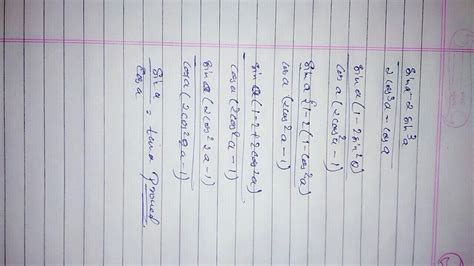 Sin a - 2 Sin³a
2 cos³a - cos a
Sin a (1-2sin²a)
cos a (2cos²a-1)
Sin a {1-2(1-cos²a)
cos a (2cos²a-1)
Sin a (1-2+2cos²a)
cos a (2cos²a-1)
Sin a (2cos²a-1)
cos a (2cos²a-1)
Sin a
cos a
= tana Proved